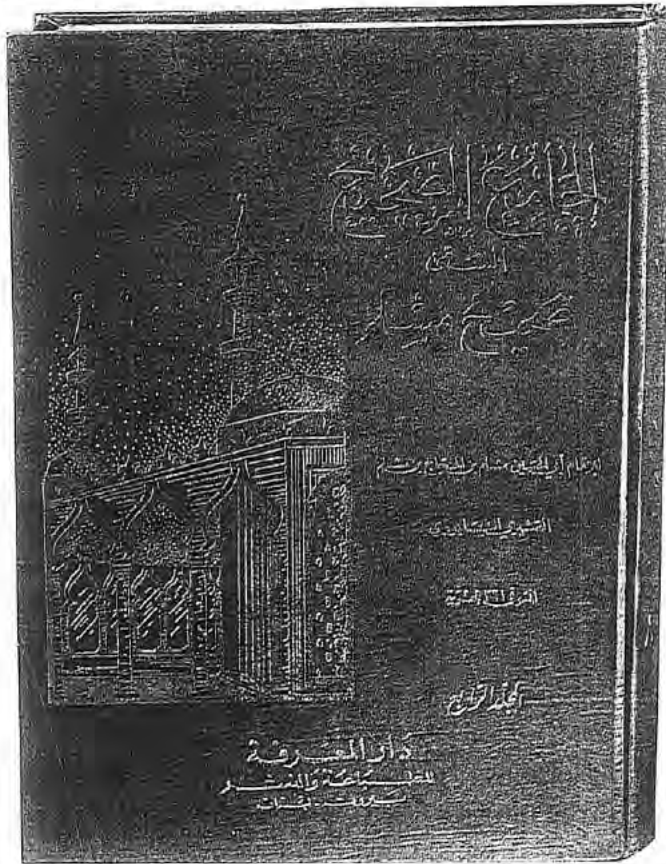 الجامع الصحيح
المسمى
صحيح مسلم
للإمام أبي الحسين مسلم بن الحجاج بن مسلم
القشيري النيسابوري
المتوفى ٢٦١ هجرية
المجلد الرابع
دار المعرفة
للطباعة والنشر
بيروت - لبنان